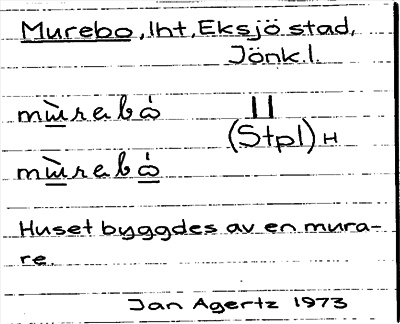 Murebo, lht, Eksjö stad,
Jönk.l.
mù̲rabó̇ II
(Stpl) H
mù̲rabò̲
Huset byggdes av en mura-
re.
Jan Agertz 1973